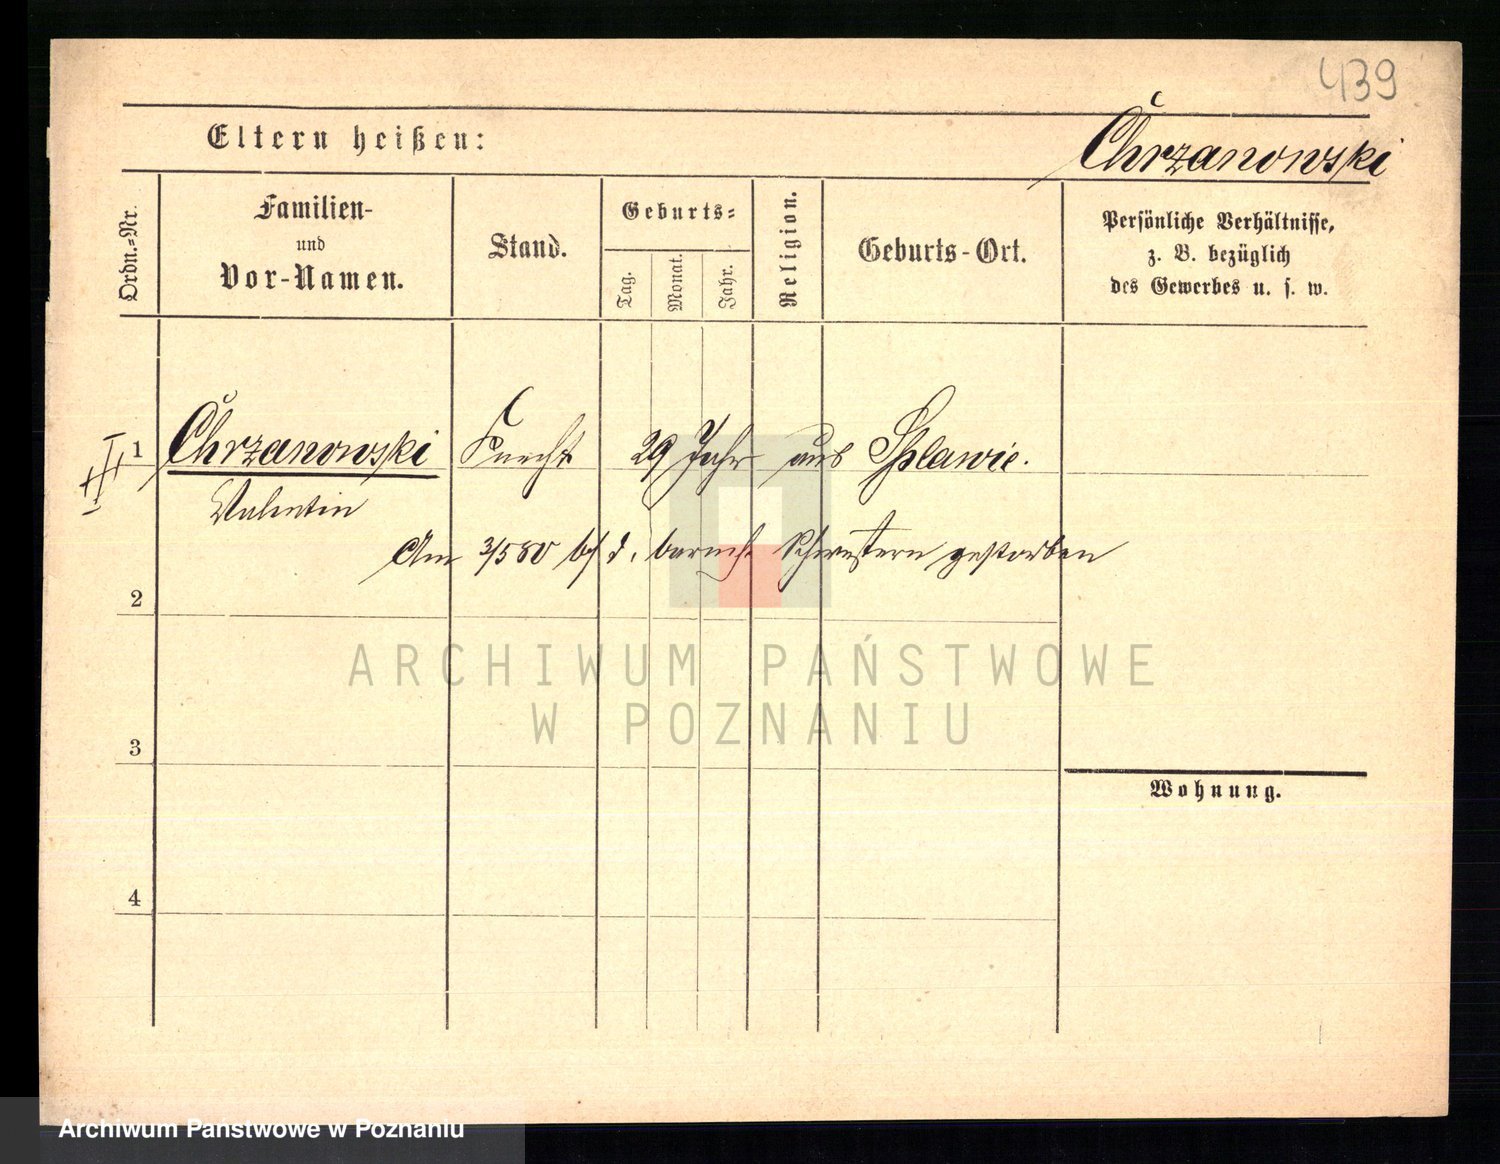 439
Eltern heißen:
Chrzanowski
Ordn.=Nr.
Familien-
und
Vor-Namen.
Stand.
Geburts=
Tag.
Monat.
Jahr.
Religion.
Geburts-Ort.
Persönliche Verhältnisse,
z. B. bezüglich
des Gewerbes u. s. w.
1 Chrzanowski Knecht 29 Jahr aus Splawie.
Valentin
Am 3/5 80 bei d. barmh. Schwestern gestorben
2
ARCHIWUM PAŃSTWOWE
W POZNANIU
3
Wohnung.
4
Archiwum Państwowe w Poznaniu